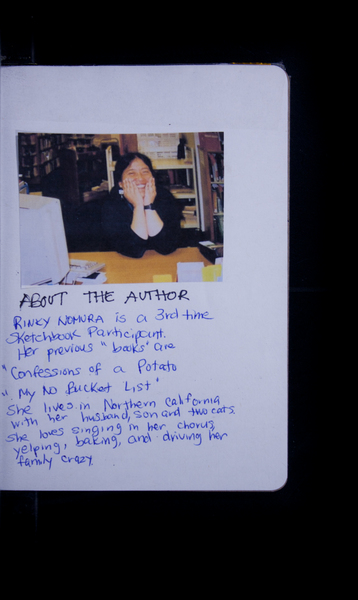 ABOUT THE AUTHOR
RINKY NOMURA is a 3rd time
Sketchbook Participant.
Her previous "books" are
"Confessions of a Potato
"My No Bucket List"
She lives in Northern California
with her husband, son and two cats.
She loves singing in her chorus,
yelping, baking, and driving her
family crazy.